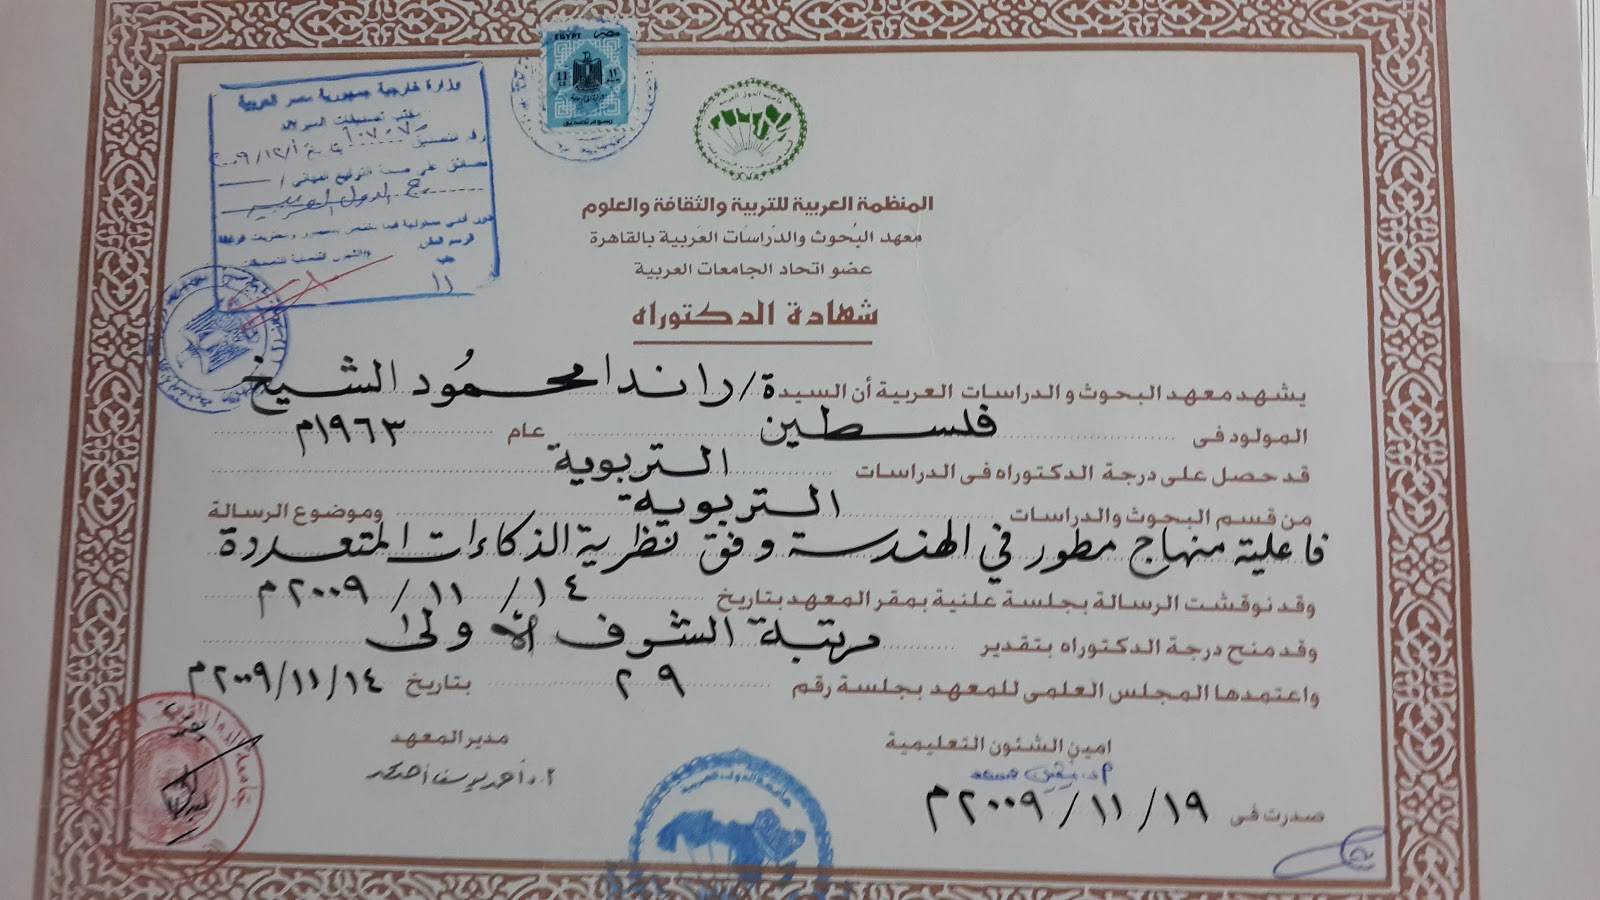 EGYPT مصر
١١ ١١
رسوم تصديق
وزارة خارجية جمهورية مصر العربية
مكتب تصديقات
رقم التصديق
تاريخ ٢٠٠٩/١٢/١
الدول العربية
١١
جامعة الدول العربية
المنظمة العربية للتربية والثقافة والعلوم
معهد البُحوث والدَراسَات العَربية بالقاهرة
عضو اتحاد الجامعات العربية
شهادة الدكتوراه
يشهد معهد البحوث والدراسات العربية أن السيدة / راندا محمُود الشيخ
المولود فى فلسطين عام ١٩٦٣م
قد حصل على درجة الدكتوراه فى الدراسات التربوية
من قسم البحوث والدراسات التربوية وموضوع الرسالة
فاعلية منهاج مطور في الهندسة وفق نظرية الذكاءات المتعددة
وقد نوقشت الرسالة بجلسة علنية بمقر المعهد بتاريخ ١٤ / ١١ / ٢٠٠٩م
وقد منح درجة الدكتوراه بتقدير مرتبة الشرف الأولى
واعتمدها المجلس العلمى للمعهد بجلسة رقم ٢٩ بتاريخ ٢٠٠٩/١١/١٤م
امين الشئون التعليمية
مدير المعهد
أ.د/ أحمد يوسف أحمد
صدرت فى ١٩ / ١١ / ٢٠٠٩م
جامعة الدول العربية